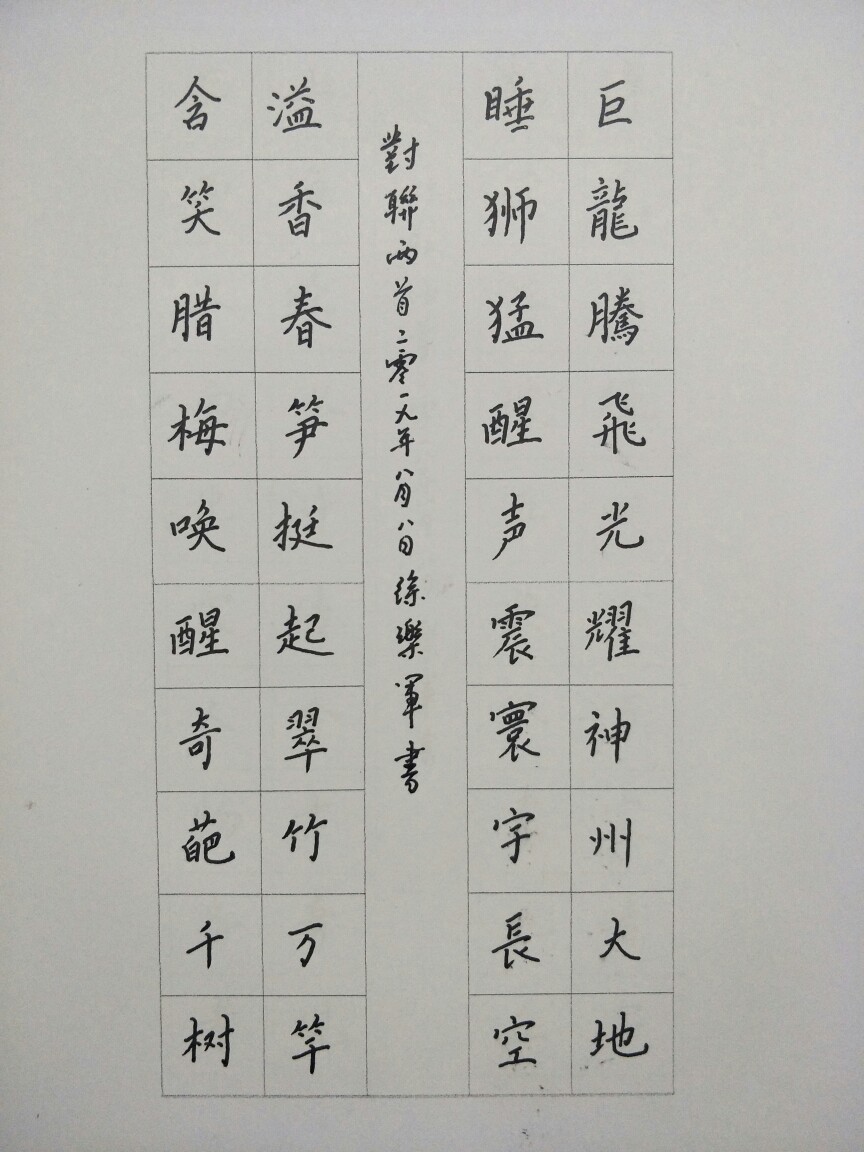 巨龍騰飛光耀神州大地
睡狮猛醒声震寰宇長空
對聯两首二零一九年八月八日徐樂軍書
溢香春笋挺起翠竹万竿
含笑腊梅唤醒奇葩千树